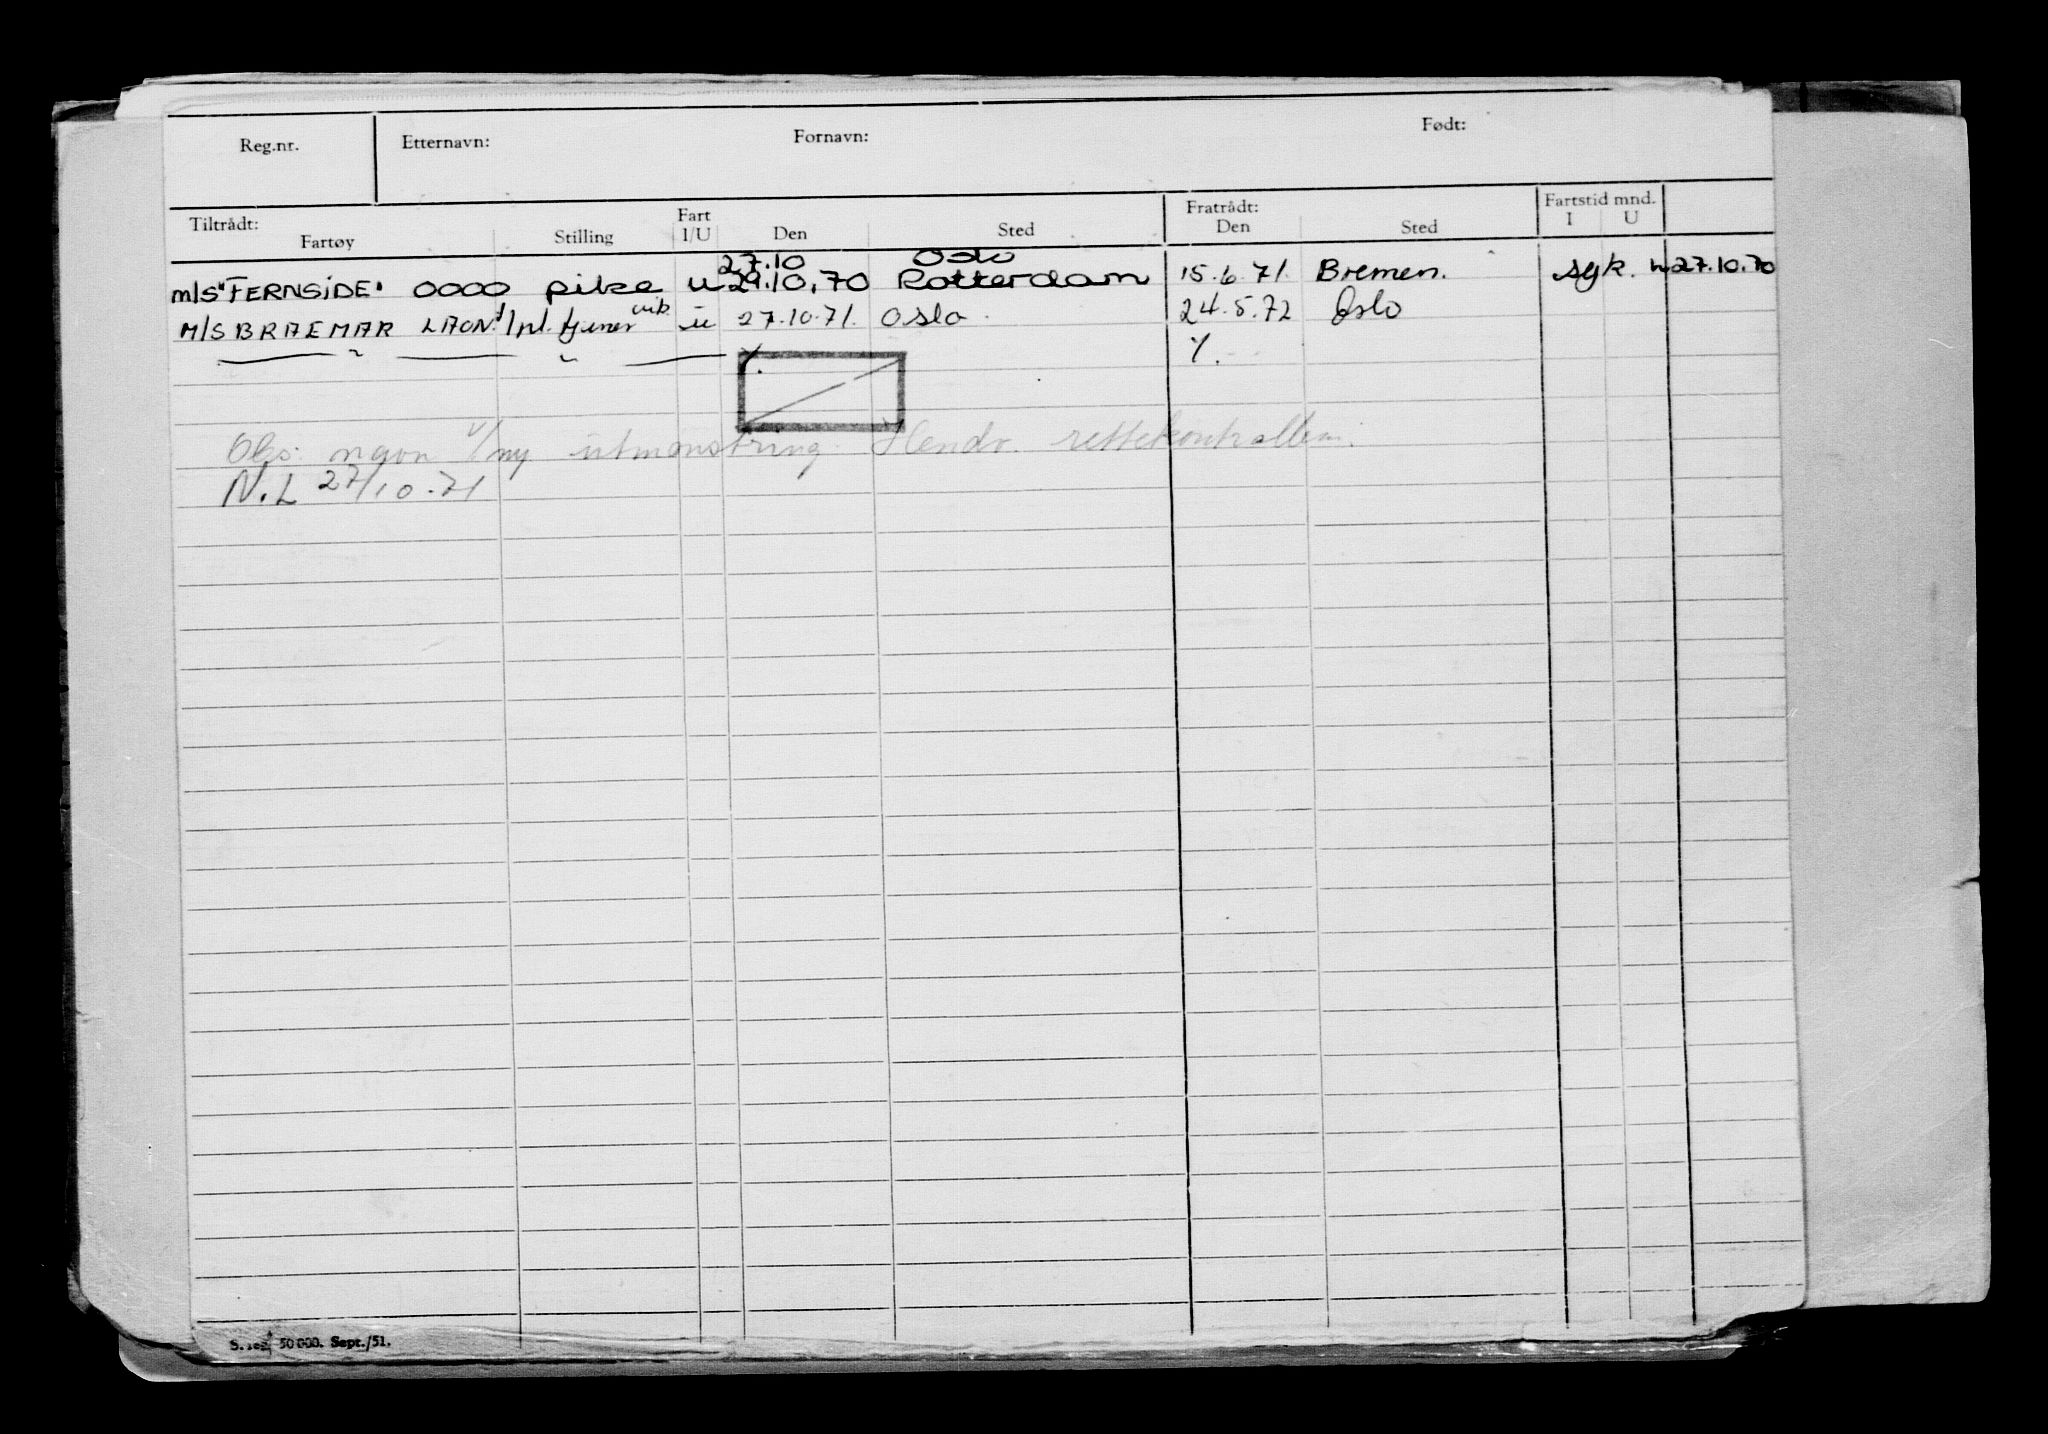 Reg.nr. Etternavn: Fornavn: Født:
Tiltrådt: Fart Fratrådt: Fartstid mnd.
Fartøy Stilling I/U Den Sted Den Sted I U
27.10 Oslo
M/S "FERNSIDE" OOOO pike u 29.10.70 Rotterdam 15.6.71. Bremen. syk. 27.10.70
vik
M/S BRAEMAR LAON. tjener u 27.10.71. Oslo. 24.5.72 Oslo
— " — " — ٪. ٪.
Obs: navn v/ny utmønstring. Hendv. rettekontrollen.
N.L 27/10-71
50 000. Sept./51.